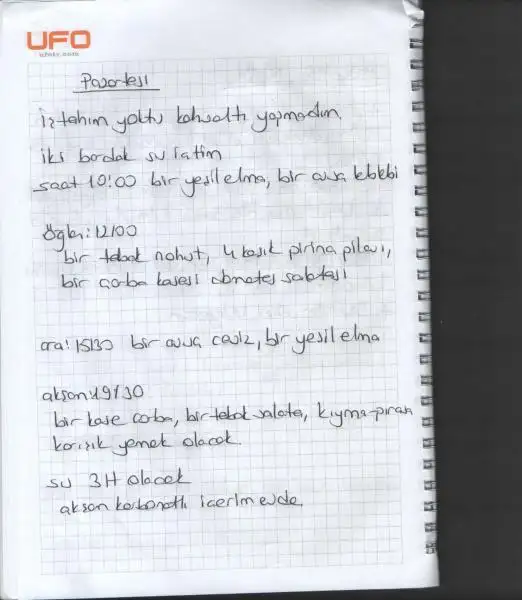 UFO
Pazartesi
iştahım yoktu kahvaltı yapmadım.
iki bardak su içtim
saat 10:00 bir yeşil elma, bir avuç leblebi
öğlen: 12/00
bir tabak nohut, 4 kaşık pirinç pilavı,
bir çorba kasesi domates salatası
ara: 15/30 bir avuç ceviz, bir yeşil elma
akşam 19/30
bir kase çorba, bir tabak salata, kıyma-pırasa
karışık yemek olacak.
su 3H olacak
akşam karbonatlı içerim evde.